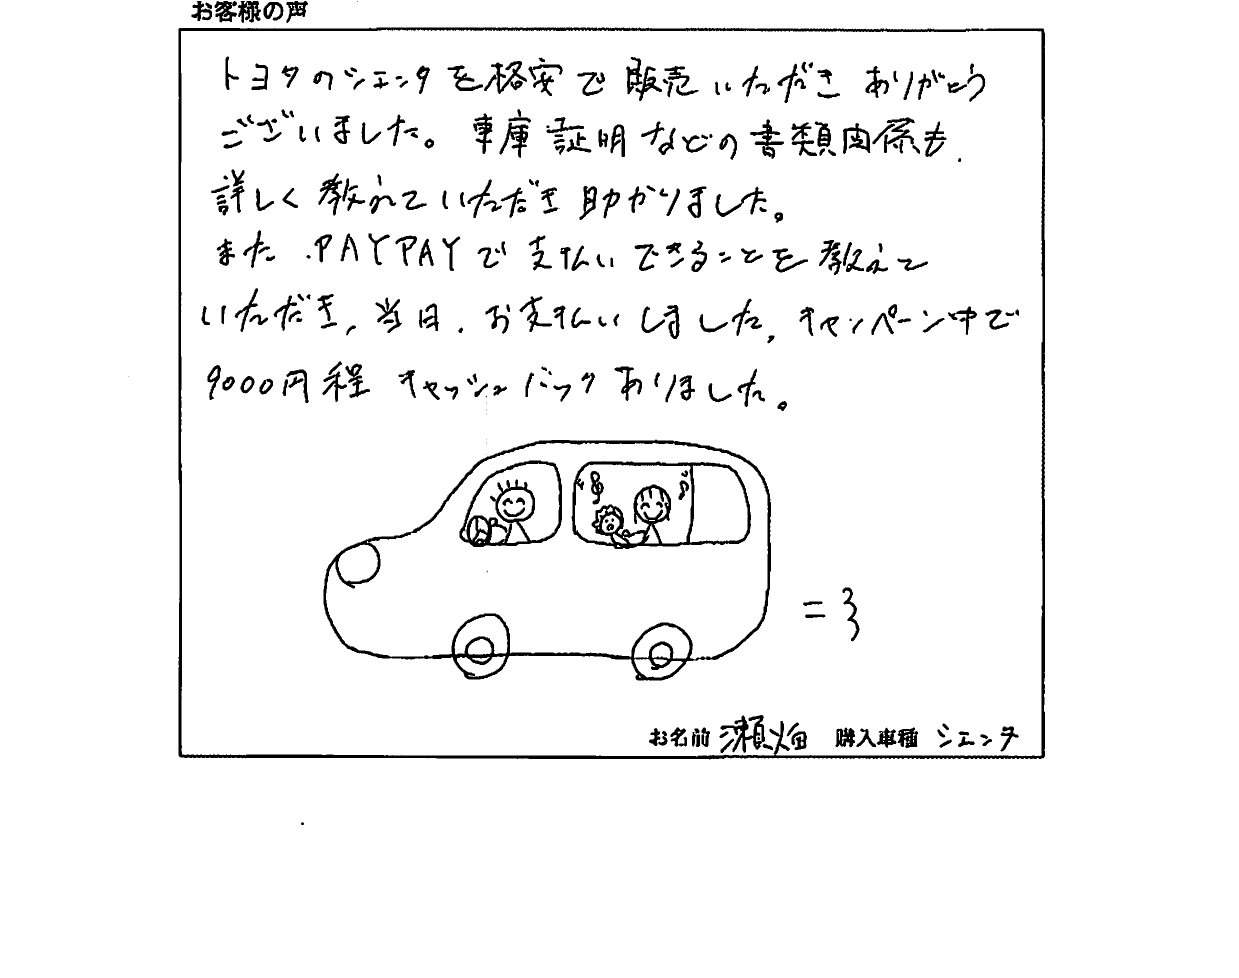 お客様の声
トヨタのシエンタを格安で販売いただきありがとう
ございました。車庫証明などの書類関係も、
詳しく教えていただき助かりました。
また、PAYPAYで支払いできることを教えて
いただき、当日、お支払いしました。キャンペーン中で
9000円程キャッシュバックありました。
お名前 瀬畑 購入車種 シエンタ